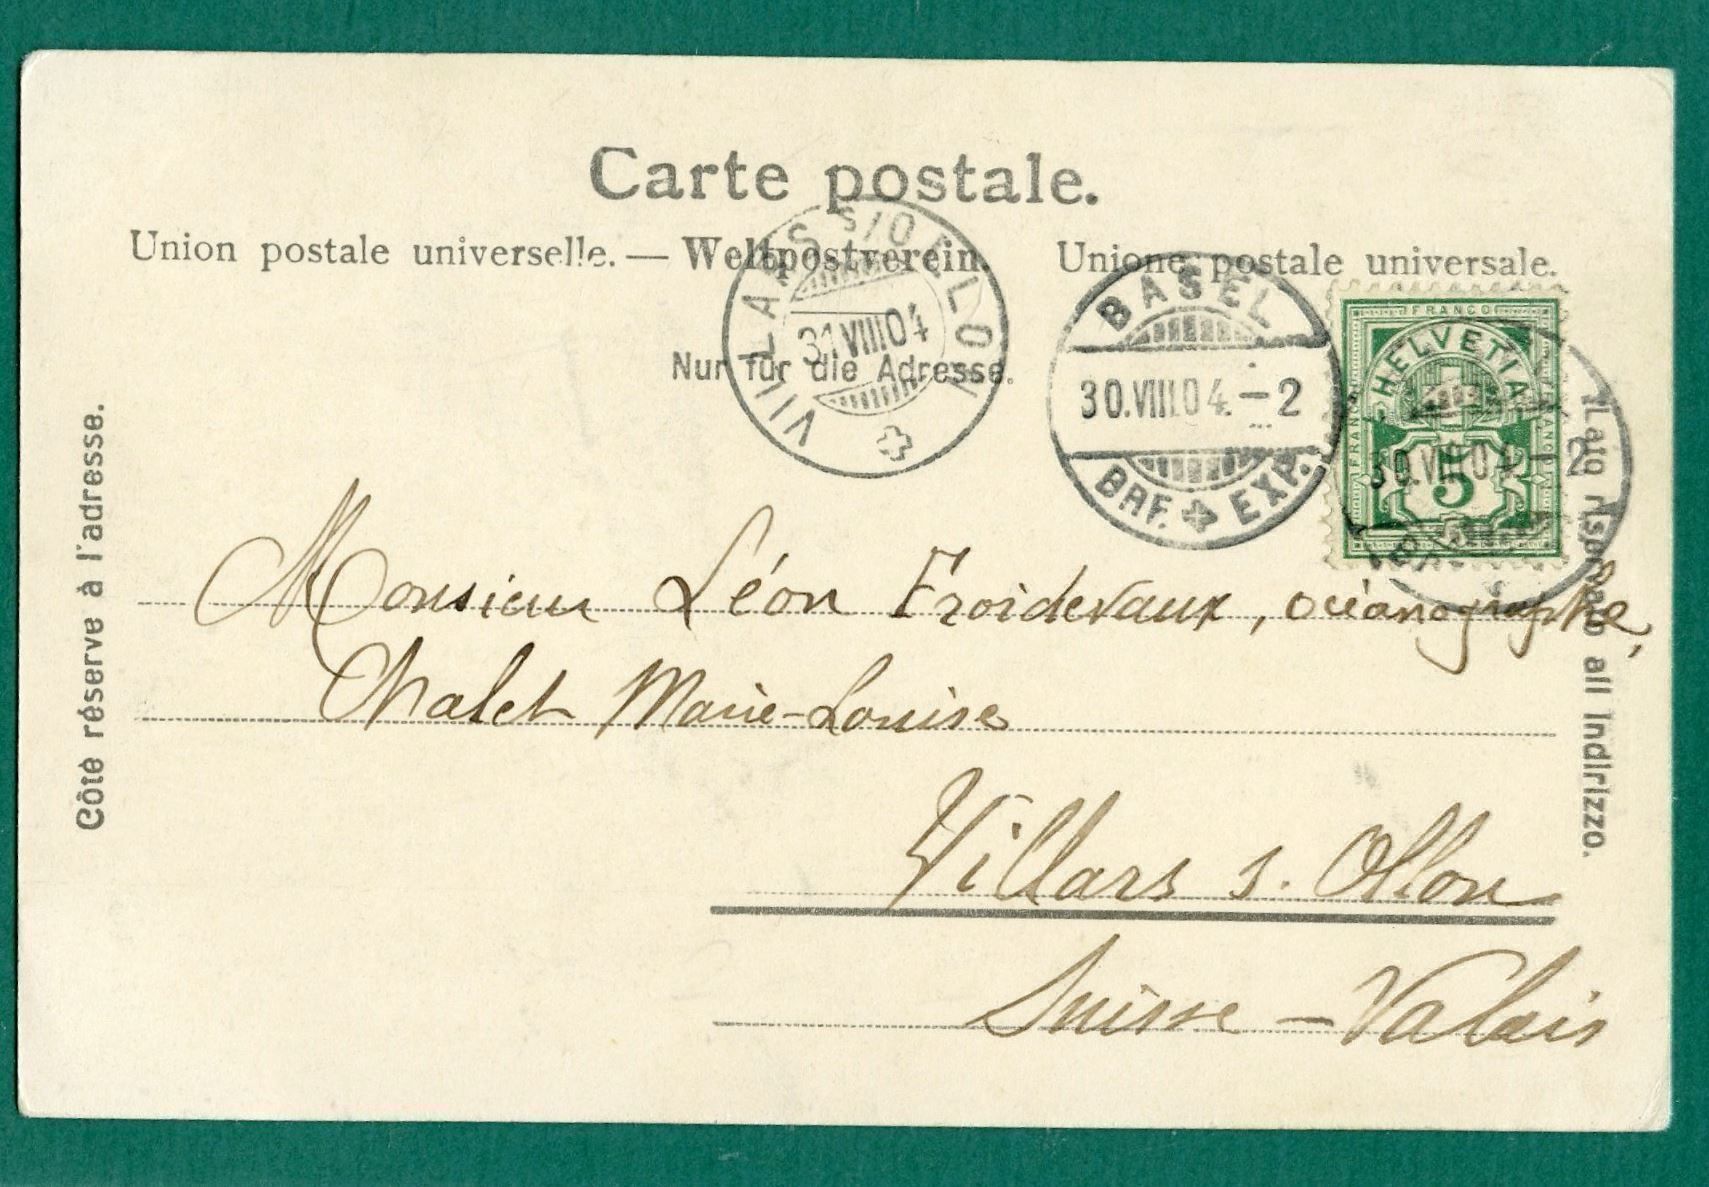 Carte postale.
Union postale universelle. — Weltpostverein. Unione postale universale.
Nur für die Adresse.
Côté réservé à l'adresse.
Lato riservato all Indirizzo.
VILLARS S/OLLON
31 VIII 04
BASEL
30.VIII.04.–2
BRF. EXP.
FRANCO
FRANCO
FRANCO
HELVETIA
5
30.VIII.04 2
Monsieur Léon Froidevaux, océanographe,
Chalet Marie-Louise
Villars s. Ollon
Suisse – Valais